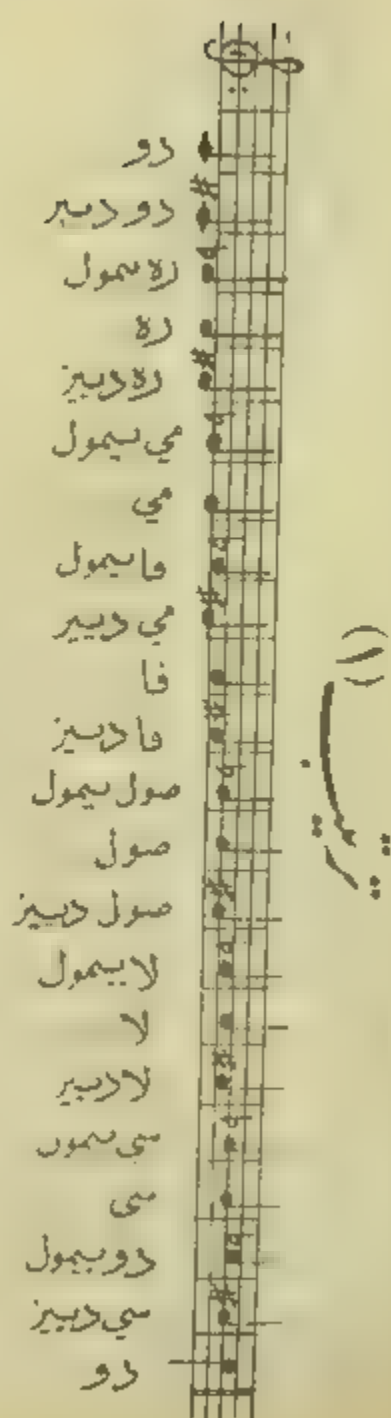 تمرين (١)
دو
دو دييز
ره بيمول
ره
ره دييز
مي بيمول
مي
فا بيمول
مي دييز
فا
فا دييز
صول بيمول
صول
صول دييز
لا بيمول
لا
لا دييز
سي بيمول
سي
دو بيمول
سي دييز
دو